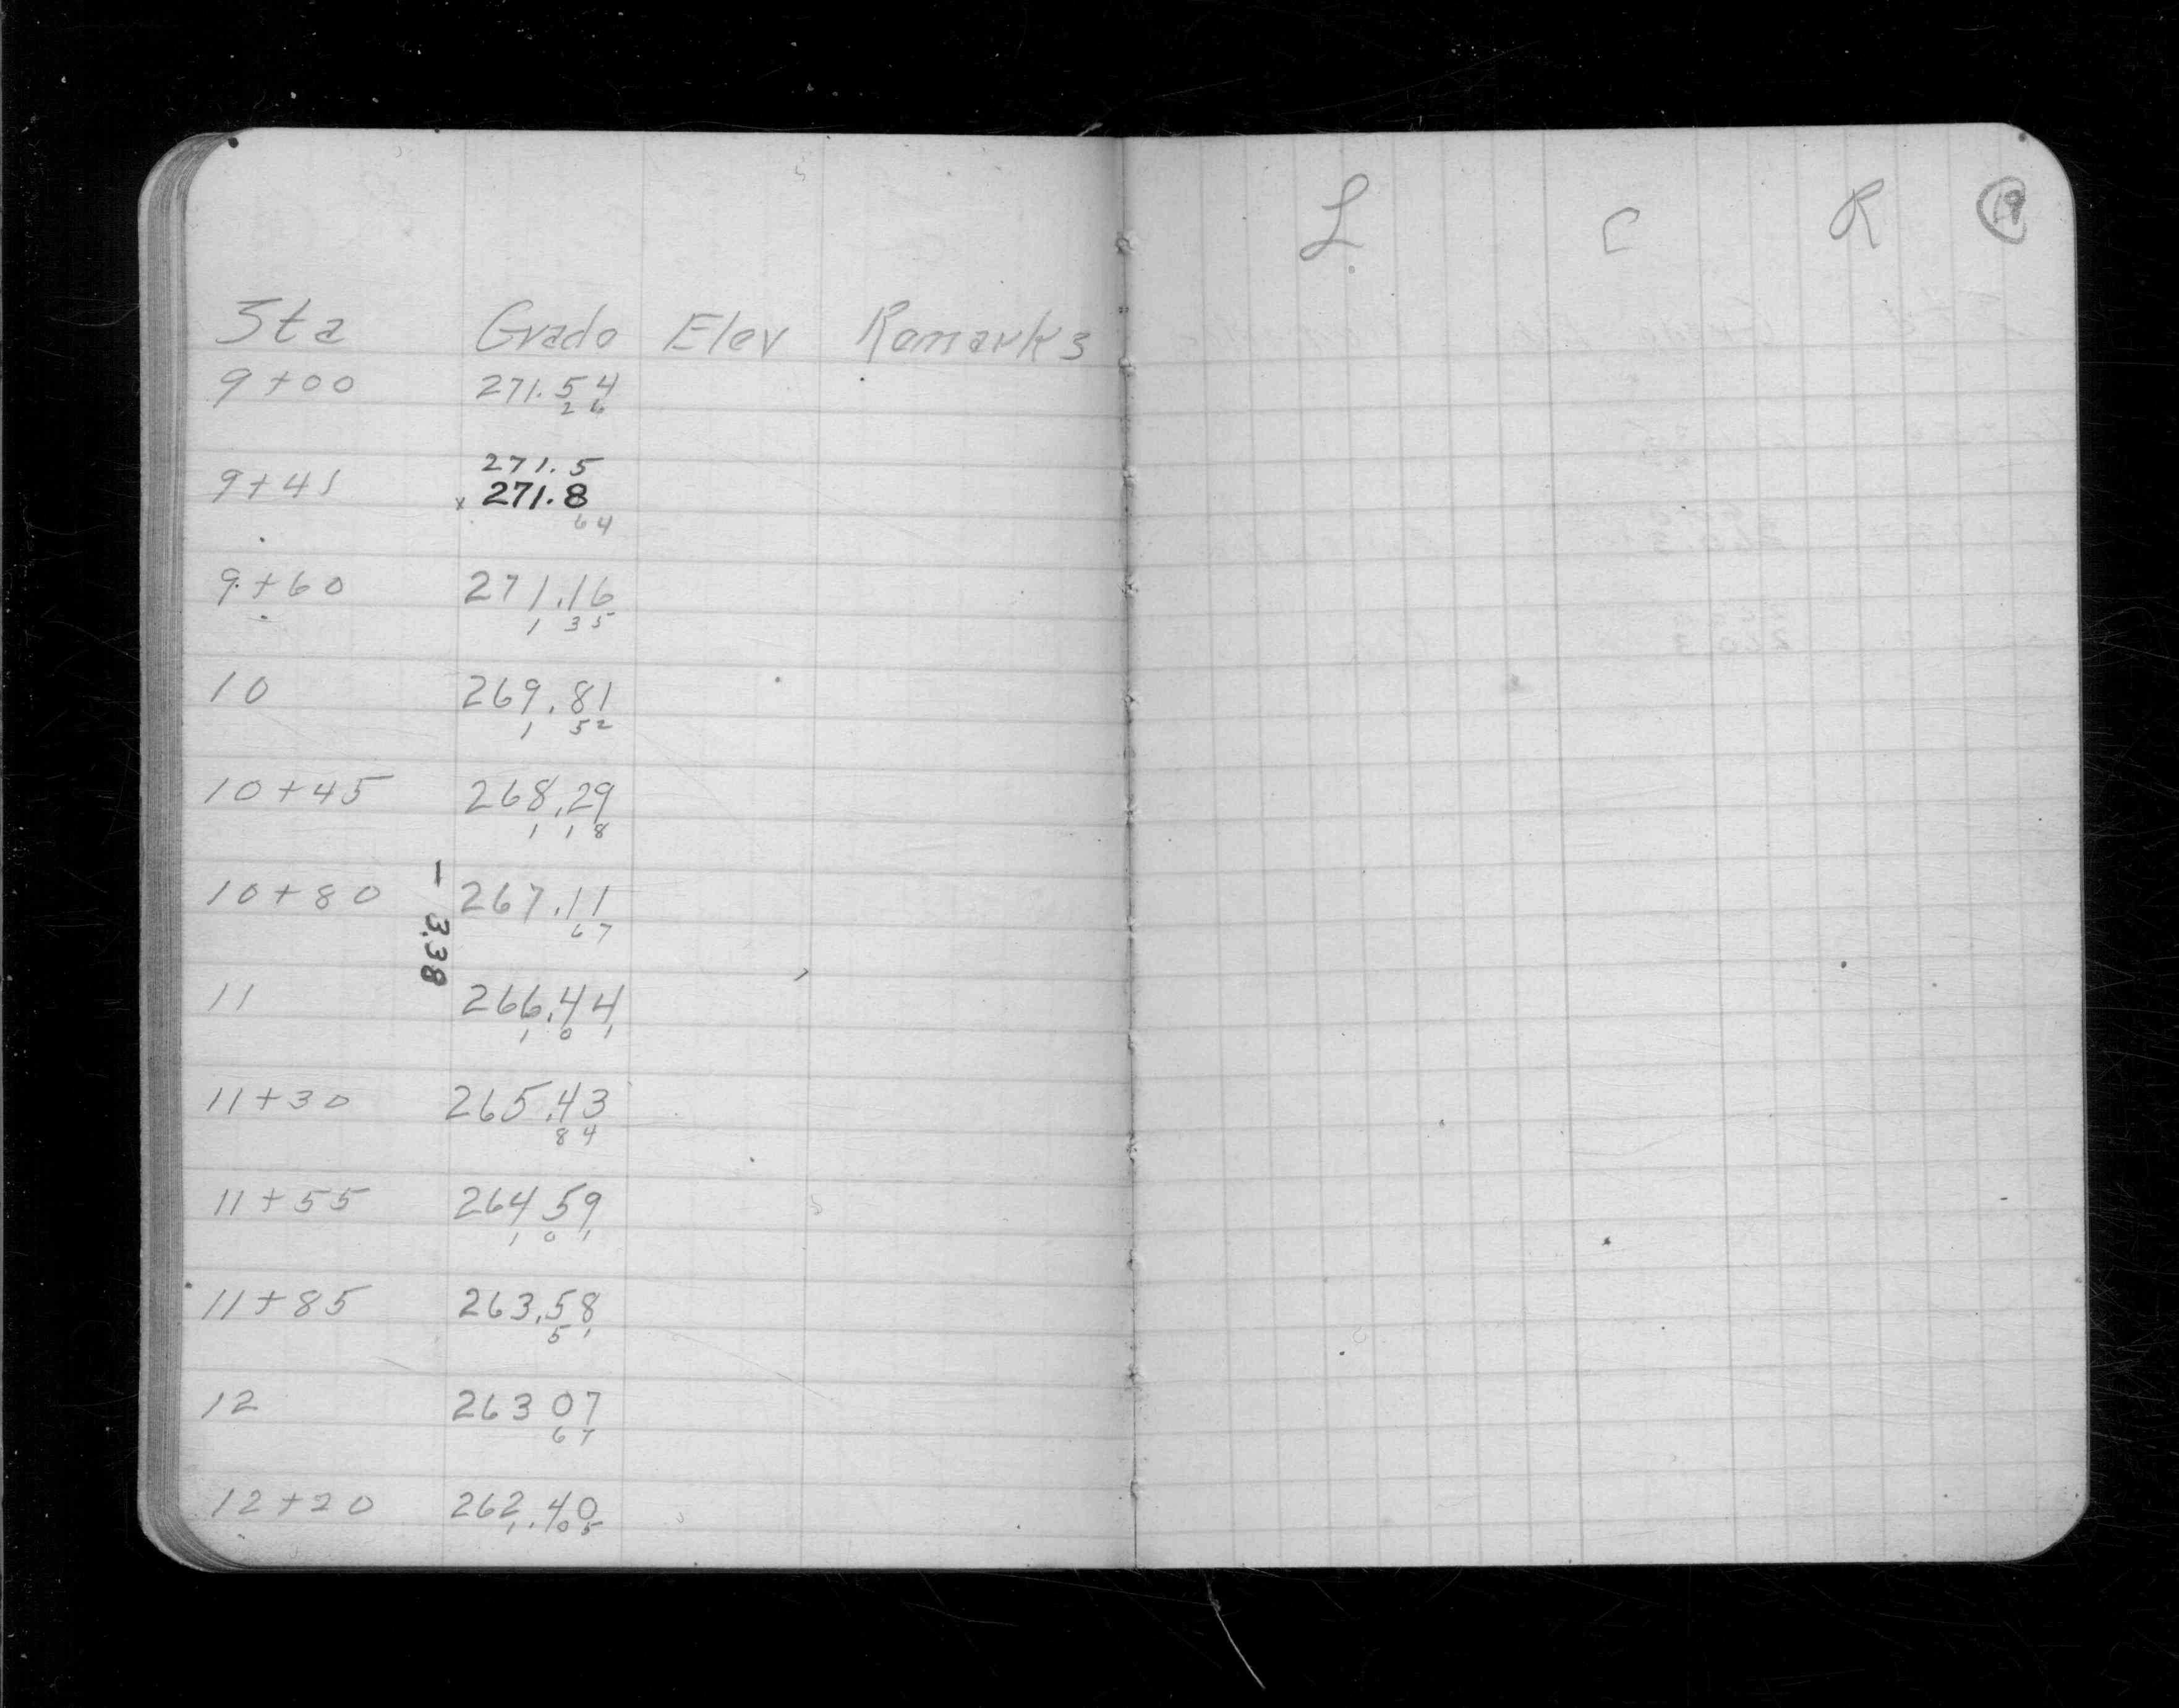 Sta Grade Elev Remarks
9+00 271.54
26
271.5
9+41 x 271.8
64
9+60 271.16
1 35
10 269.81
1 52
10+45 268.29
1 18
10+80 267.11
67
- 3.38
11 266.44
1 01
11+30 265.43
84
11+55 264 59
1 01
11+85 263.58
51
12 263 07
67
12+20 262.40
1.05
L C R 19